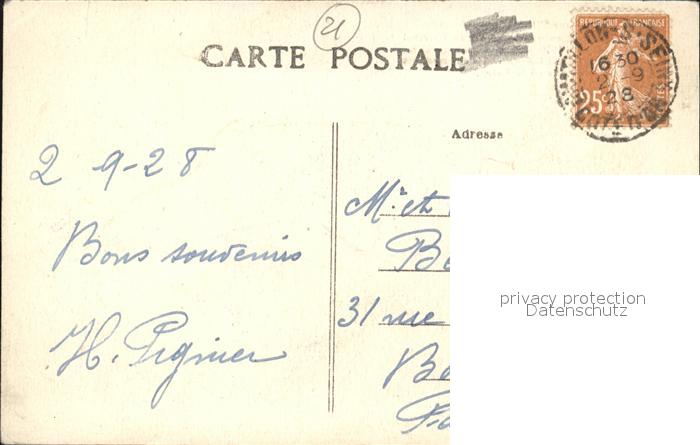 21
CARTE POSTALE
REPUBLIQUE FRANÇAISE
25c
16 30
2 9
28
CÔTE D'OR
Adresse
2 9-28
Bons souvenirs
H.
Mr et
31 rue
privacy protection
Datenschutz